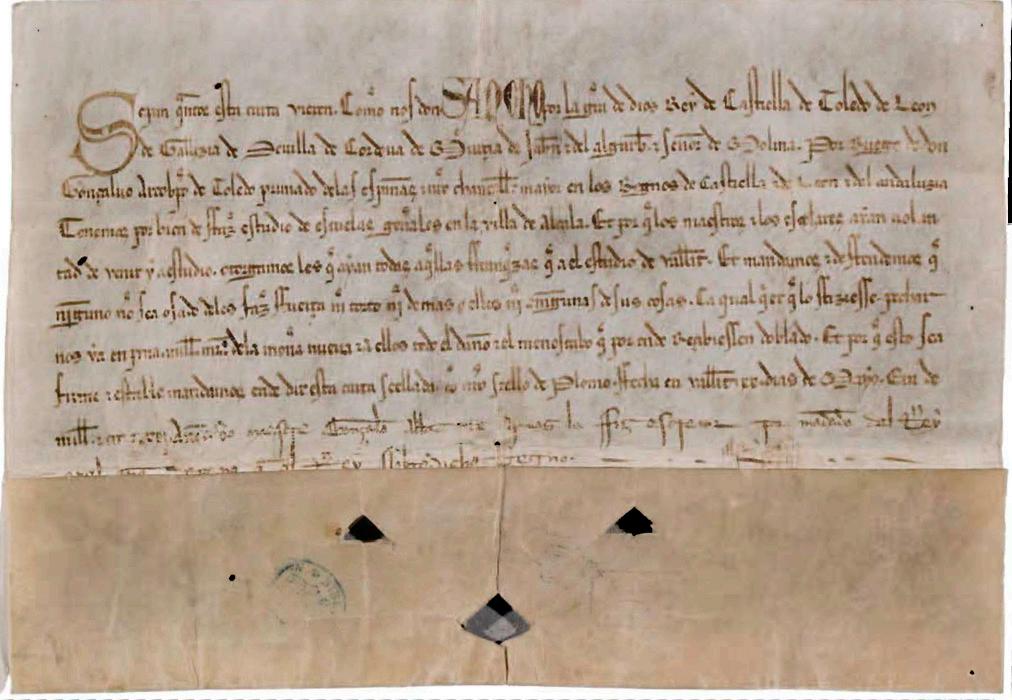 Sepan q̃ntos esta carta vieren. Como nos don SANCHO por la gr̃a de dios Rey de Castiella de Toledo de Leon
de Gallizia de Seuilla de Cordoua de Murçia de Jahen ⁊ del algarb̃ ⁊ señor de Molina. Por Ruego de don
Gonçaluo Arçobp̃o de Toledo primado delas espannas ⁊ nr̃o chançell̃ mayor en los Regnos de Castiella ⁊ de Leon ⁊ del andaluzia
Tenemos por bien de ffaz̃ estudio de escuelas gen̄ales en la villa de alcala. Et por q̃ los maestros ⁊ los escolares ayan uolun
tad de venir y a estudio. otorgamos les q̃ ayan todas aq̃llas ffranq̃zas q̃ a el estudio de vallit. Et mandamos ⁊ deffendemos q̃
ninguno nõ sea osado delos faz̃ ffuerça nĩ tuerto nĩ demas a ellos nĩ a ningunas de sus cosas. Ca qual q̃er q̃ lo ffiziesse. pechar
nos ya en pena. mill̃ mr̃s dela moneda nueua ⁊ a ellos todo el daño ⁊ el menoscabo q̃ por ende Reçibiessen doblado. Et por q̃ esto sea
firme ⁊ estable mandamos ende dar esta carta seellada cõ nr̃o seello de Plomo. ffecha en vallit. xx. dias de Mayo. Era de
mill̃ Maestre Gonçalo Abbat la ffiz escreuir por mandado del Rey
Rey sobredicho regno.